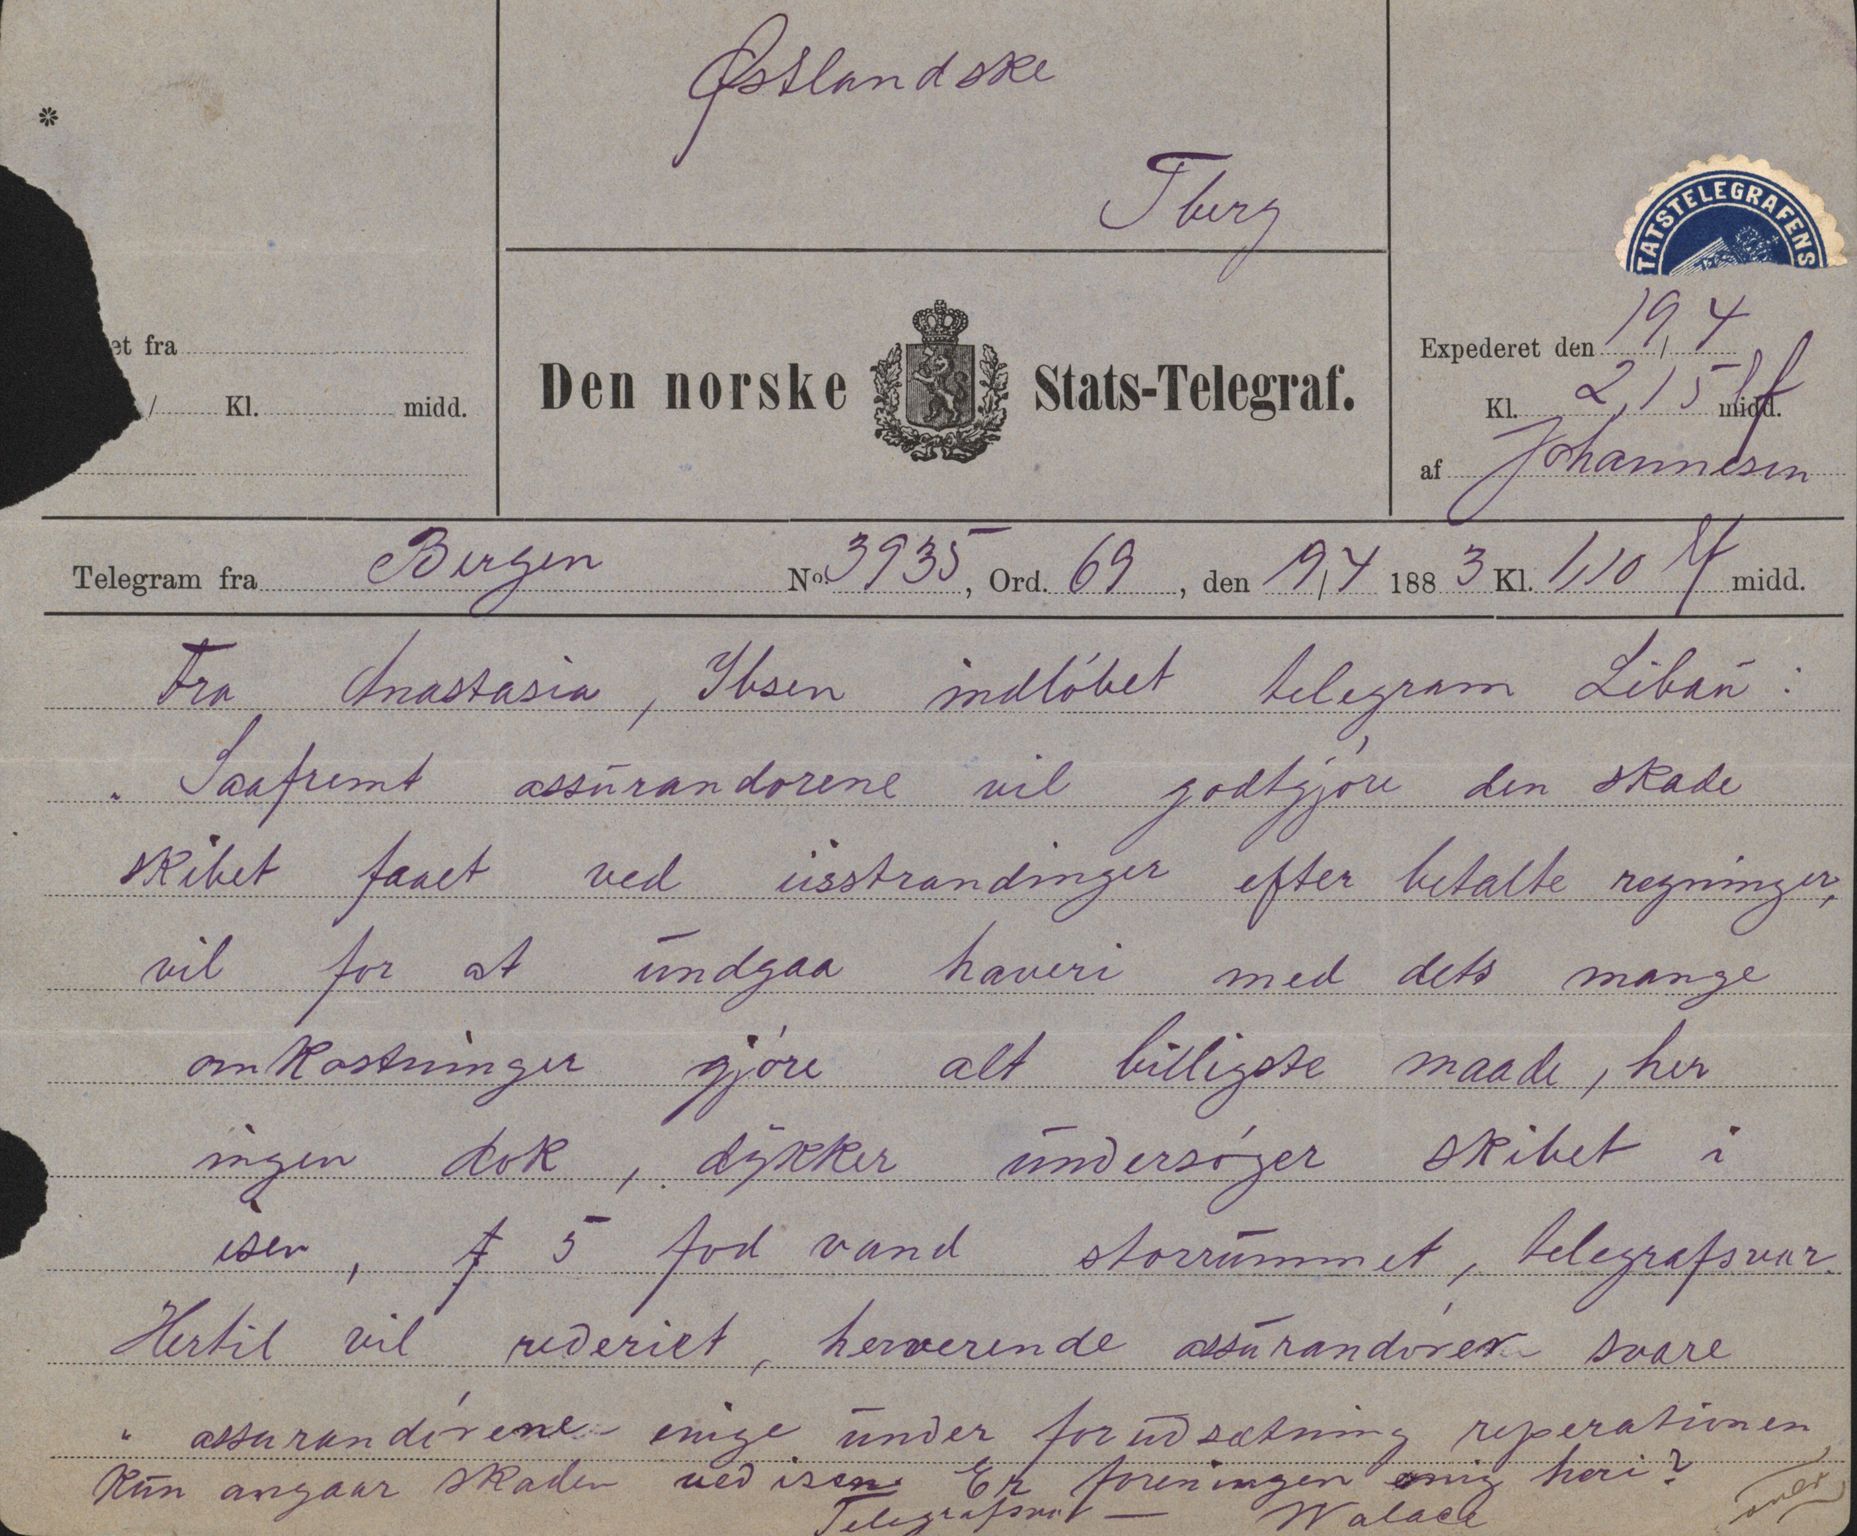 Østlandske
Tberg
*
TATSTELEGRAFENS
et fra
/ Kl. midd.
Den norske Stats-Telegraf.
Expederet den 19/4
Kl. 2,15 midd.
af Johannesen
Telegram fra Bergen No. 3935, Ord. 69, den 19/4 1883 Kl. 1,10 Ef midd.
Fra Anastasia, Ibsen indløbet telegram Libau:
"Saafremt assurandørene vil godtgjøre den skade
skibet faaet ved iisstrandinger efter betalte regninger,
vil for at undgaa haveri med dets mange
omkostninger gjøre alt billigste maade, her
ingen dok, dykker undersøger skibet i
isen, 5 fod vand storrummet, telegrafsvar.
Hertil vil rederiet, herværende assurandører svare
"assurandørene enige under forudsætning reperationen
kun angaar skaden ved isen. Er foreningen enig heri?
Telegrafsvar — Walace